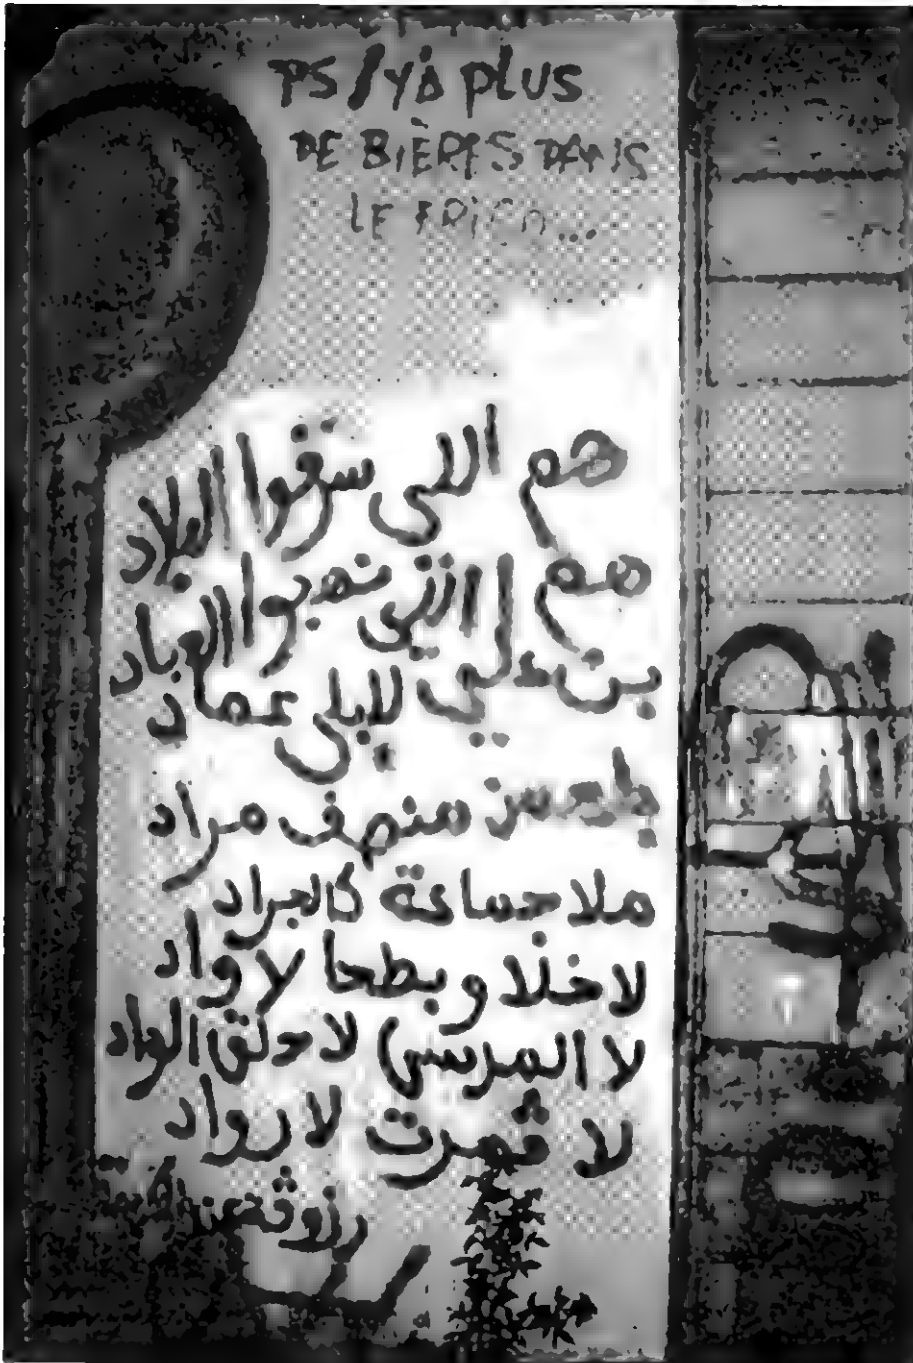 PS/Y'A PLUS
DE BIÈRES DANS
LE FRIGO...
هم اللي سرقوا البلاد
هم اللي نهبوا العباد
بن علي للبلي عماد
بلحسن منصف مراد
ملا جماعة كالجراد
لا خلاو بطحا لا واد
لا المرسى لا حلق الواد
لا ڨمرت لا رواد